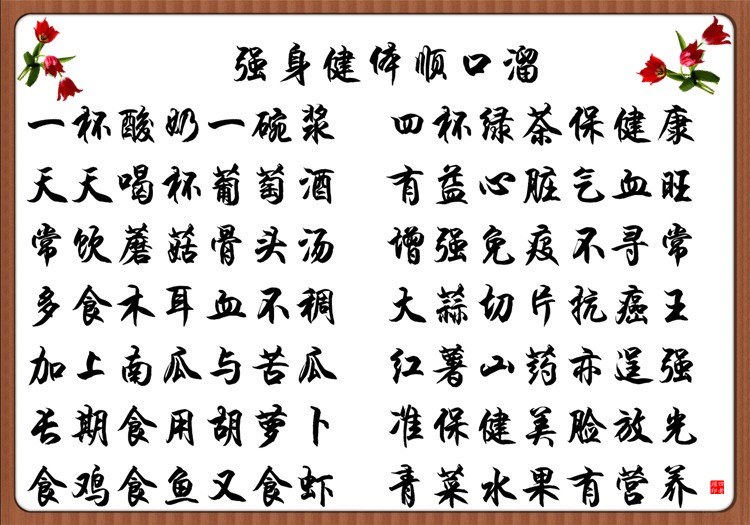 强身健体顺口溜
一杯酸奶一碗浆 四杯绿茶保健康
天天喝杯葡萄酒 有益心脏气血旺
常饮蘑菇骨头汤 增强免疫不寻常
多食木耳血不稠 大蒜切片抗癌王
加上南瓜与苦瓜 红薯山药亦逞强
长期食用胡萝卜 准保健美脸放光
食鸡食鱼又食虾 青菜水果有营养